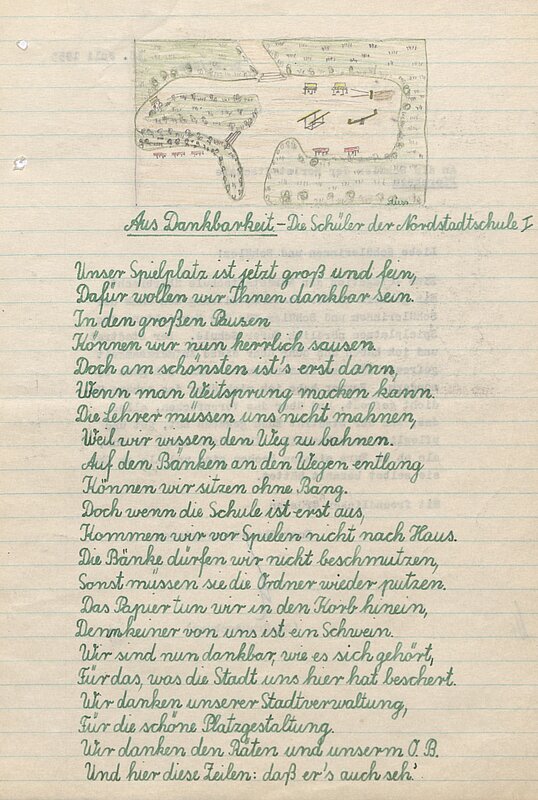 Aus Dankbarkeit – Die Schüler der Nordstadtschule I
Unser Spielplatz ist jetzt groß und fein,
Dafür wollen wir Ihnen dankbar sein.
In den großen Pausen
Können wir nun herrlich sausen.
Doch am schönsten ist's erst dann,
Wenn man Weitsprung machen kann.
Die Lehrer müssen uns nicht mahnen,
Weil wir wissen, den Weg zu bahnen.
Auf den Bänken an den Wegen entlang
Können wir sitzen ohne Bang.
Doch wenn die Schule ist erst aus,
Kommen wir vor Spielen nicht nach Haus.
Die Bänke dürfen wir nicht beschmutzen,
Sonst müssen sie die Ordner wieder putzen.
Das Papier tun wir in den Korb hinein,
Denn keiner von uns ist ein Schwein.
Wir sind nun dankbar, wie es sich gehört,
Für das, was die Stadt uns hier hat beschert.
Wir danken unserer Stadtverwaltung,
Für die schöne Platzgestaltung.
Wir danken den Räten und unserm O.B.
Und hier diese Zeilen: daß er's auch seh'.